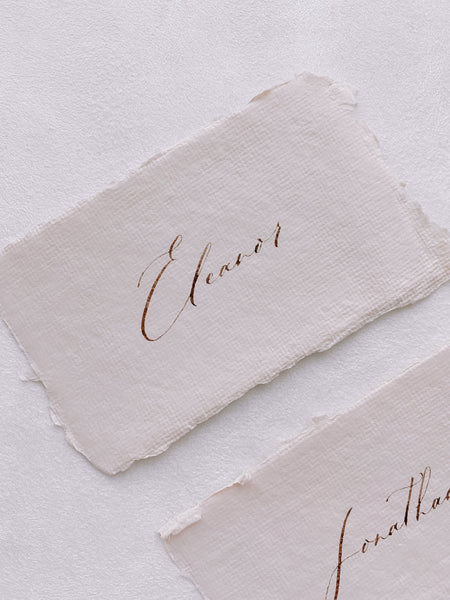 Eleanor
Jonatha